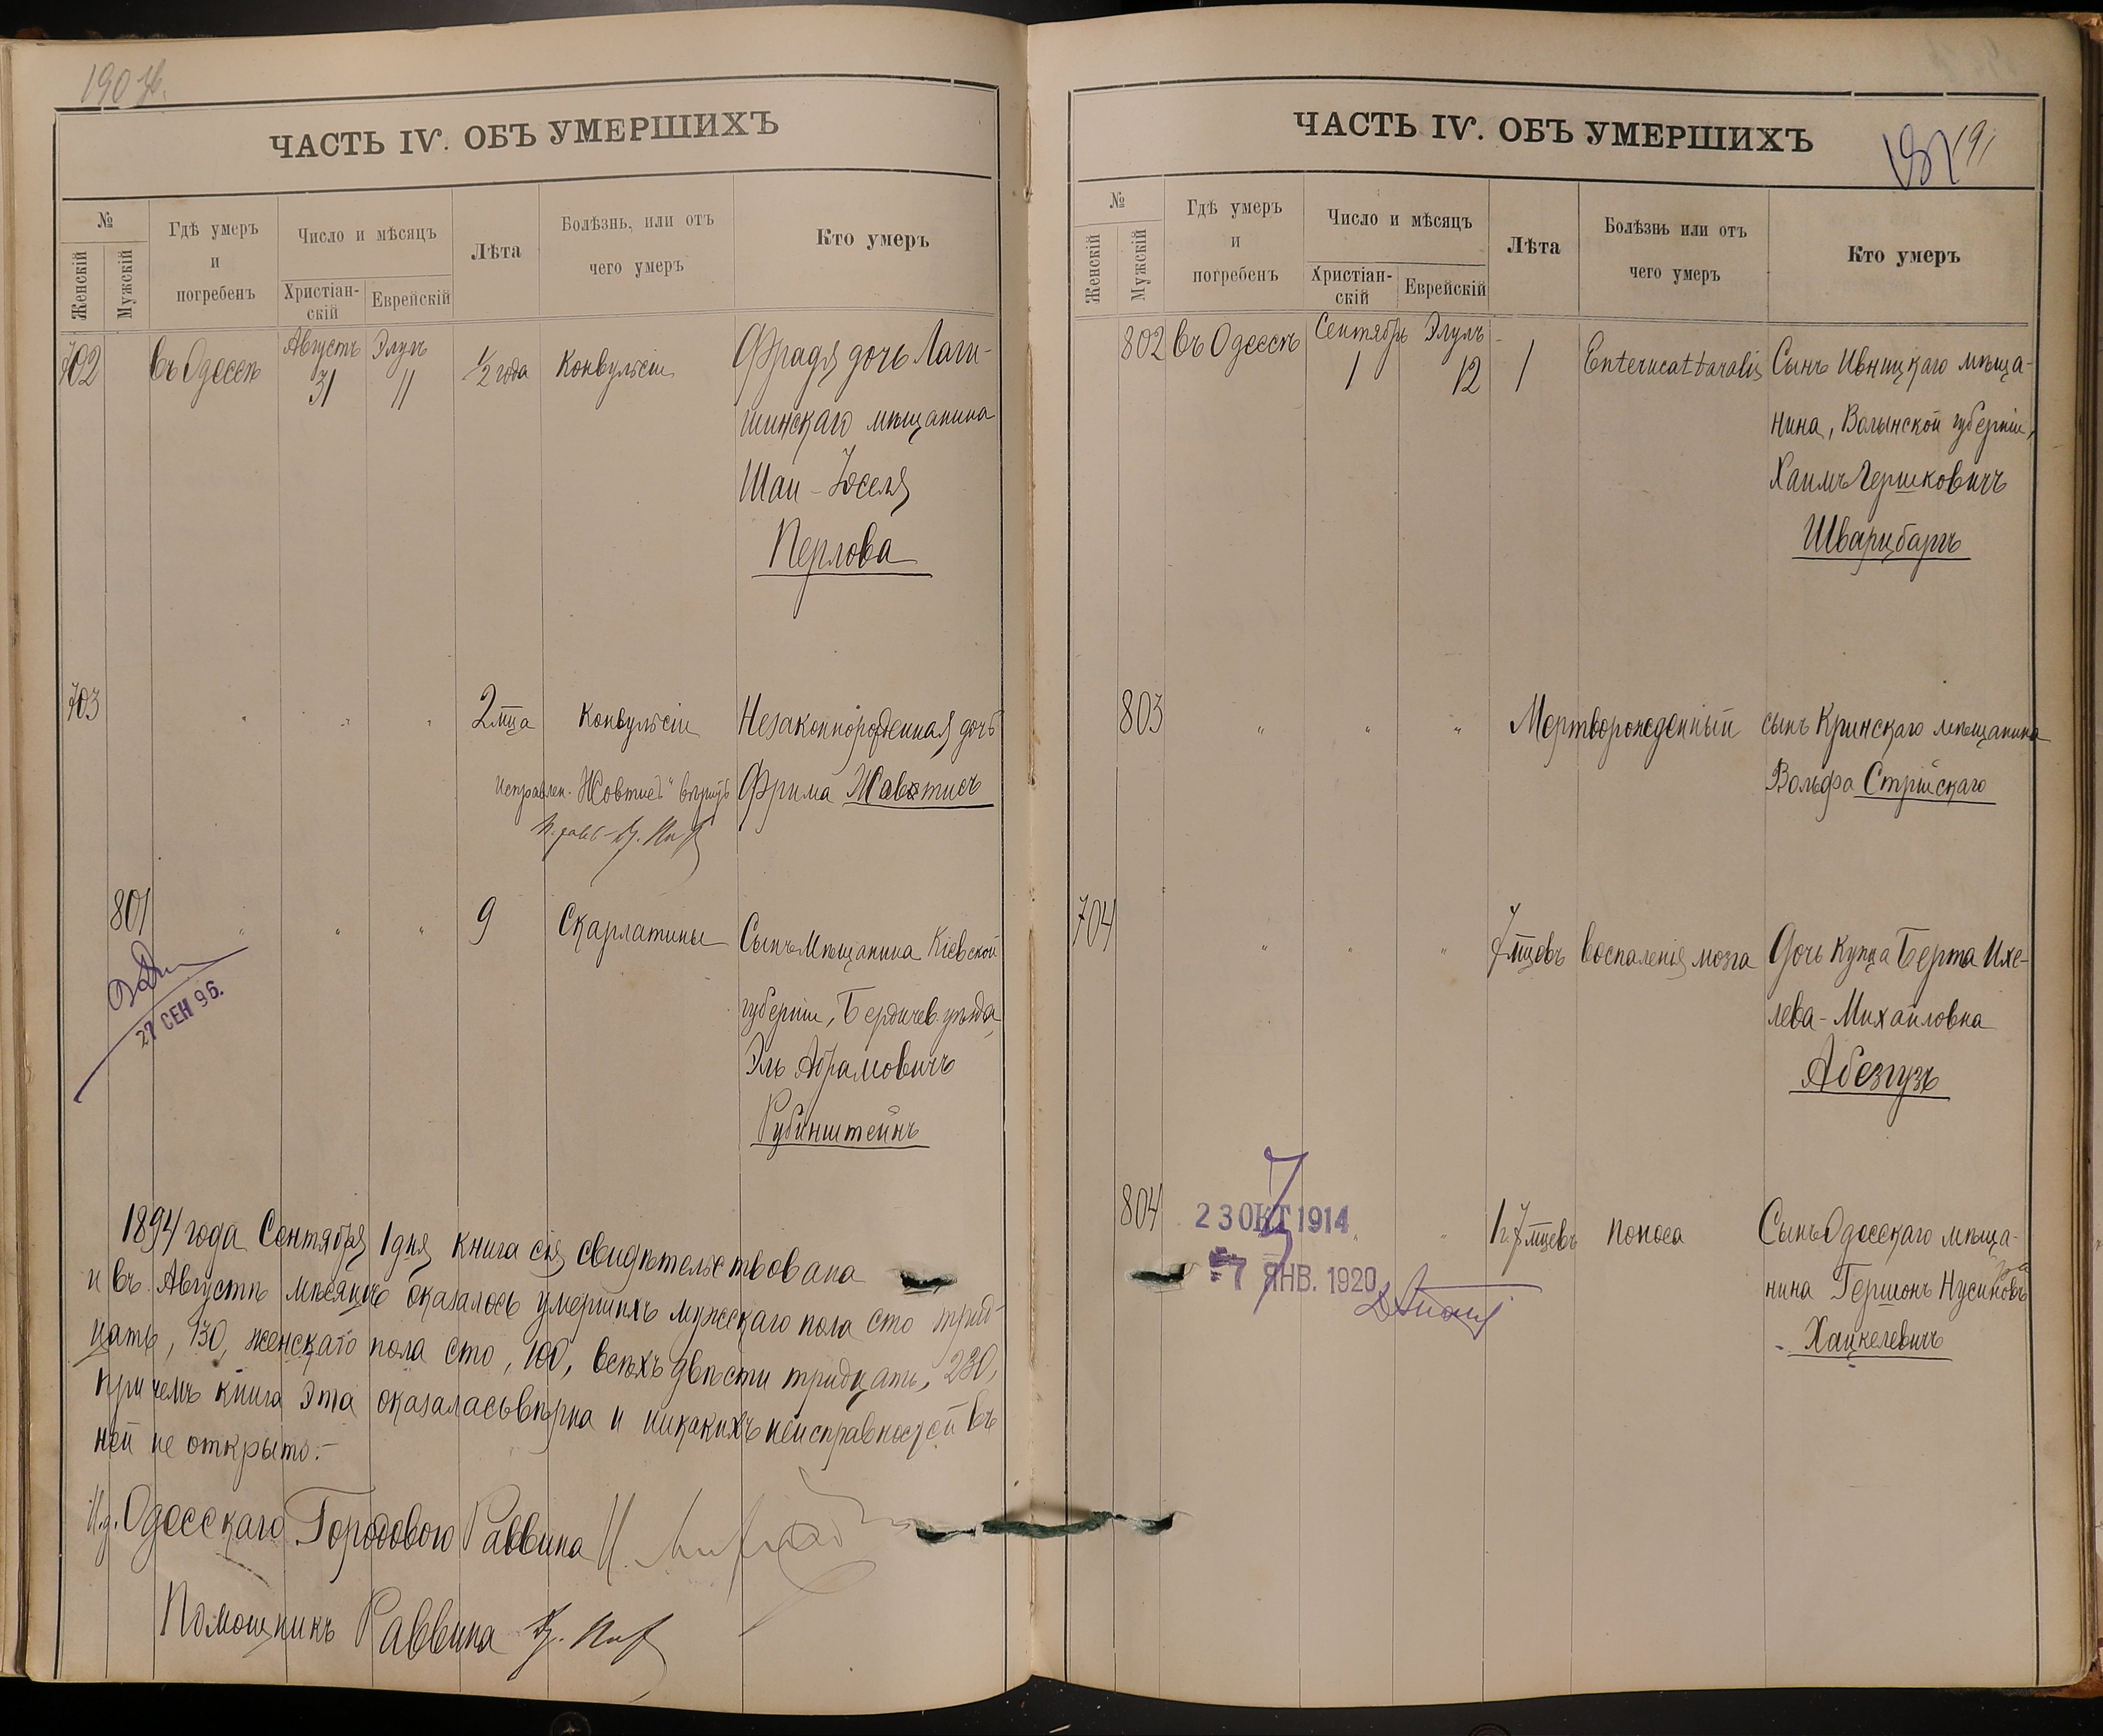 190 об.
ЧАСТЬ IV. ОБЪ УМЕРШИХЪ
№
Женскій
Мужскій
Гдѣ умеръ
и
погребенъ
Число и мѣсяцъ
Христіан-
скій
Еврейскій
Лѣта
Болѣзнь, или отъ
чего умеръ
Кто умеръ
702 въ Одессѣ Августъ 31 Элулъ 11 1/2 года Конвульсіи Фрадя дочь Логи-
шинскаго мѣщанина
Шаи-Іоселя
Перлова
703 " " " 2 мца Конвульсіи Незаконнорожденная дочь
Фрима Жавтисъ
Исправлен. "Жовтисъ" вѣрить
801 " " " 9 Скарлатины Сынъ Мѣщанина Кіевской
губерніи, Бердичев. уѣзда
Эль Абрамовичъ
Рубинштейнъ
27 СЕН 96.
1894 года Сентября 1 дня книга сія свидѣтельствована
и въ Августѣ мѣсяцѣ оказалось умершихъ мужскаго пола сто трид-
цать, 130, женскаго пола сто, 100, всѣхъ двѣсти тридцать, 230,
при чемъ книга эта оказалась вѣрна и никакихъ неисправностей въ
ней не открыто.-
И.д. Одесскаго Городового Раввина
Помощникъ Раввина
ЧАСТЬ IV. ОБЪ УМЕРШИХЪ
191
№
Женскій
Мужскій
Гдѣ умеръ
и
погребенъ
Число и мѣсяцъ
Христіан-
скій
Еврейскій
Лѣта
Болѣзнь или отъ
чего умеръ
Кто умеръ
802 въ Одессѣ Сентябрь 1 Элулъ 12 1 Enterucattaralis Сынъ Ивницкаго мѣща-
нина, Волынской губерніи,
Хаимъ Гершковичъ
Шварцбаргъ
803 " " " Мертворожденный сынъ Кринскаго мѣщанина
Вольфа Стрійскаго
704 " " " 7 мцевъ воспаленія мозга Дочь Купца Берта Ихе-
лева-Михайловна
Абезгузъ
804 " " 1 г. 7 мцевъ поноса Сынъ Одесскаго мѣща-
нина Гершонъ Нусиновъ
Хацкелевичъ
23 ОКТ 1914
7 ЯНВ. 1920